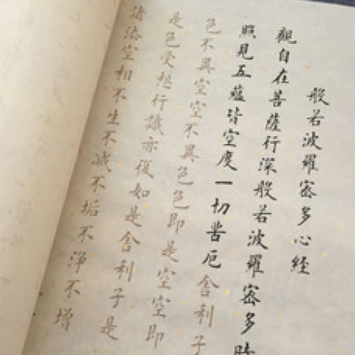 般若波羅密多心經
觀自在菩薩行深般若波羅密多時
照見五蘊皆空度一切苦厄舍利子
色不異空空不異色色即是空空即
是色受想行識亦復如是舍利子是
諸法空相不生不滅不垢不淨不增